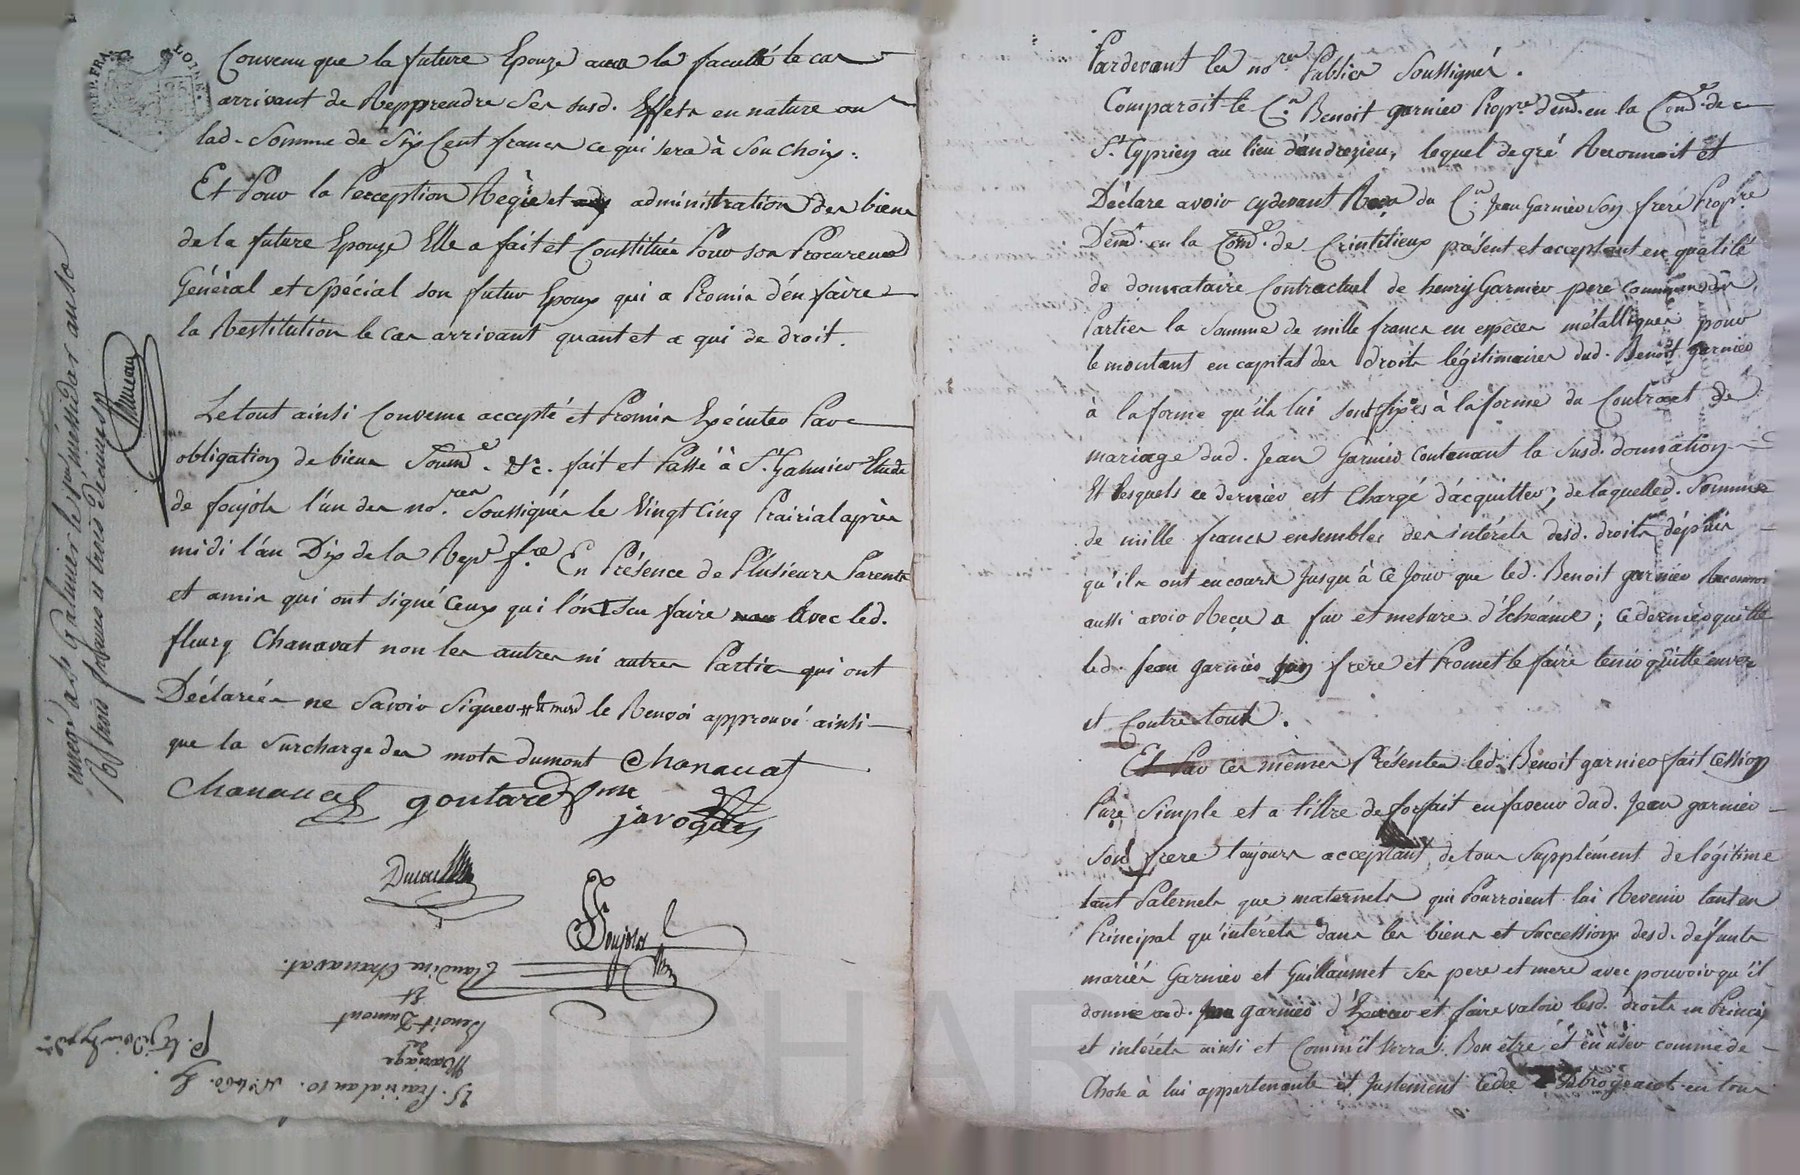 REP. FRA. LOIRE.
Convenu que la future Epouze aura la faculté le cas
arrivant de Repprendre ses susd. Effets en nature ou
lad. Somme de Six Cent francs ce qui sera à Son choix.
Et Pour la Perception Régie et administration des biens
de la future Epouze Elle a fait et Constitué Pour son Procureur
Général et Spécial son futur Epoux qui a Promis d'en faire
la Restitution le cas arrivant quant et a qui de droit.
Le tout ainsi Convenu accepté et Promis Exécuter Par
obligation de biens Soumon. &c. fait et Passé à St. Galmier Etude
de foujols l'un des nores. Soussignés le Vingt Cinq Prairial après
midi l'an Dix de la Rep. fse. En Présence de Plusieurs Parents
et amis qui ont signé Ceux qui l'ont seu faire Avec led.
fleury Chanavat non les autres ni autres Parties qui ont
Déclarés ne Savoir Signer le Renvoi approuvé ainsi
que la Surcharge des mots dumont Chanavat
Chanavat goutard
javogues
Dumont
Foujols
inuéré à St Galmier le prairial an 10
trois francs
25. Prairial an 10. No. 
Mariage
de
Benoit Dumont
Et
Claudine Chanavat.
Pardevant les nores Publics Soussignés.
Comparoit le Cn. Benoit garnier Propre. demt. en la Come. de
St. Cyprien au lieu d'andrezieu, lequel de gré Reconnoit et
Déclare avoir cydevant Reçu du Cn. Jean Garnier Son frere Propre
Demt. en la Come. de Crintilieux présent et acceptant en qualité
de donnataire Contractuel de henry Garnier pere commun des
Parties la Somme de mille francs en espèces métalliques pour
le montant en capital des droits légitimaires dud. Benoit garnier
à la forme qu'ils lui sont fixés à la forme du Contract de
mariage dud. Jean Garnier Contenant la Susd. donnation
Et lesquels ce dernier est Chargé d'acquitter; de laquelle d. Somme
de mille francs ensembles des intérêts desd. droits dépuis
qu'ils ont eu cours Jusqu'à Ce Jour que led. Benoit garnier Reconnoi
aussi avoir Reçu a fur et mesure d'Echéance; Ce dernier quitte
led. Jean garnier son frere et Promet le faire tenir quitte envers
et Contre tous.
Et Par Ces mêmes Présentes led. Benoit garnier fait Cession
Pure Simple et a tittre de forfait en faveur dud. Jean garnier
Son frere toujours acceptant de tous Supplément de légitime
tant Paternels que maternels qui Pourroient lui Revenir tant en
Principal qu'intérêts dans les biens et Successions desd. défunts
mariés Garnier et Guillaumet Ses pere et mere avec pouvoir qu'il
donne aud. garnier d'Exercer et faire valoir lesd. droits en Princip
et intérêts ainsi et Comm'il verra Bon être et en user comme de
Chose à lui appartenante et Justement Cedée Subrogeant en tous